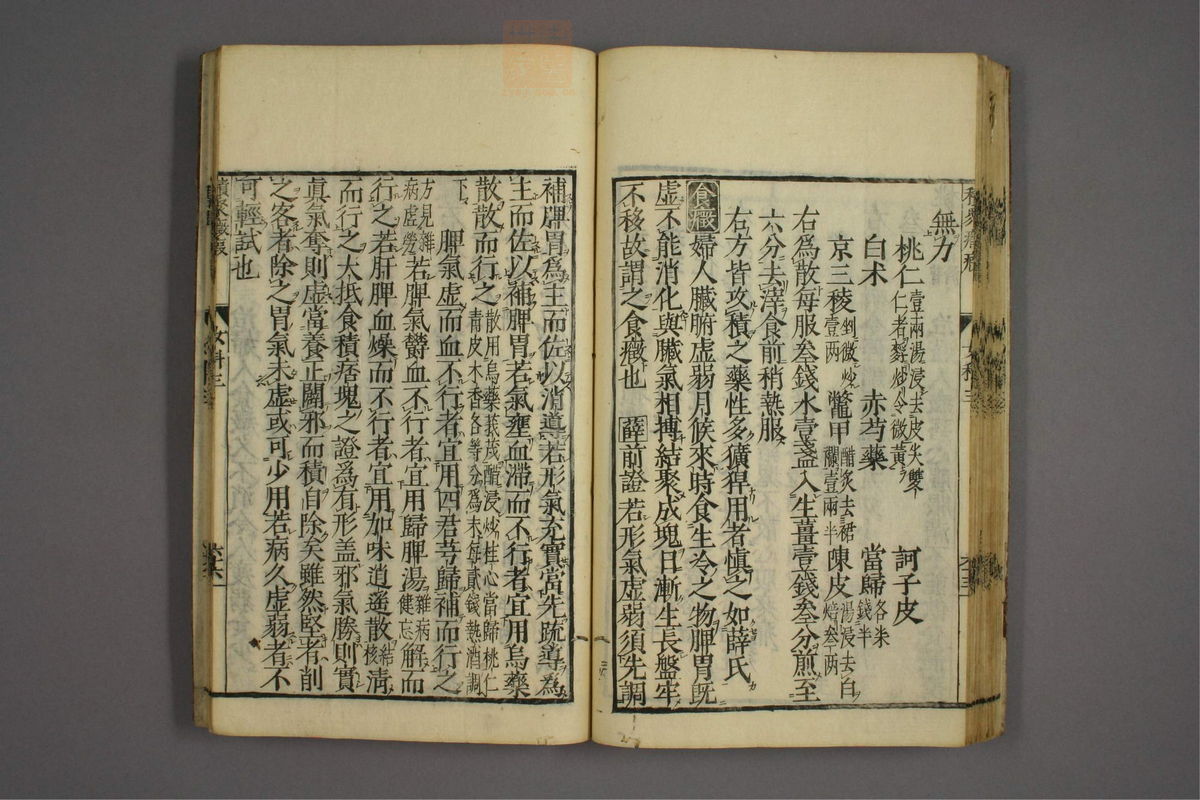 無力
桃仁 壹兩湯浸去皮尖雙仁者麪炒令微黃 訶子皮
白术 赤芍藥 當歸 各米錢半
京三稜 剉微炒壹两 鼈甲 醋炙去裙襴壹兩半 陳皮 湯浸去白焙叁两
右爲散每服叁錢水壹盞入生薑壹錢叁分煎至
六分去滓食前稍熱服
右方皆攻積之藥性多獷猂用者慎之如薛氏
食癥 婦人臟腑虛弱月候來時食生冷之物脾胃既
虛不能消化與臟氣相搏結聚成塊日漸生長盤牢
不移故謂之食癥也 薛 前證若形氣虛弱須先調
補脾胃爲主而佐以消導若形氣充實當先疏導爲
主而佐以補脾胃若氣壅血滯而不行者宜用烏藥
散散而行之 散用烏藥莪茂醋浸炒桂心當歸桃仁青皮木香各等分爲末每貳錢熱酒調
下 若脾氣虛而血不行者宜用四君芎歸補而行之
方見雜病虛勞 若脾氣鬱血不行者宜用歸脾湯 雜病健忘 解而
行之若肝脾血燥而不行者宜用加味逍遙散 結核 清
而行之大抵食積痞塊之證爲有形盖邪氣勝則實
眞氣奪則虛當養正闢邪而積自除矣雖然堅者削
之客者除之胃氣未虛或可少用若病久虛弱者不
可輕試也